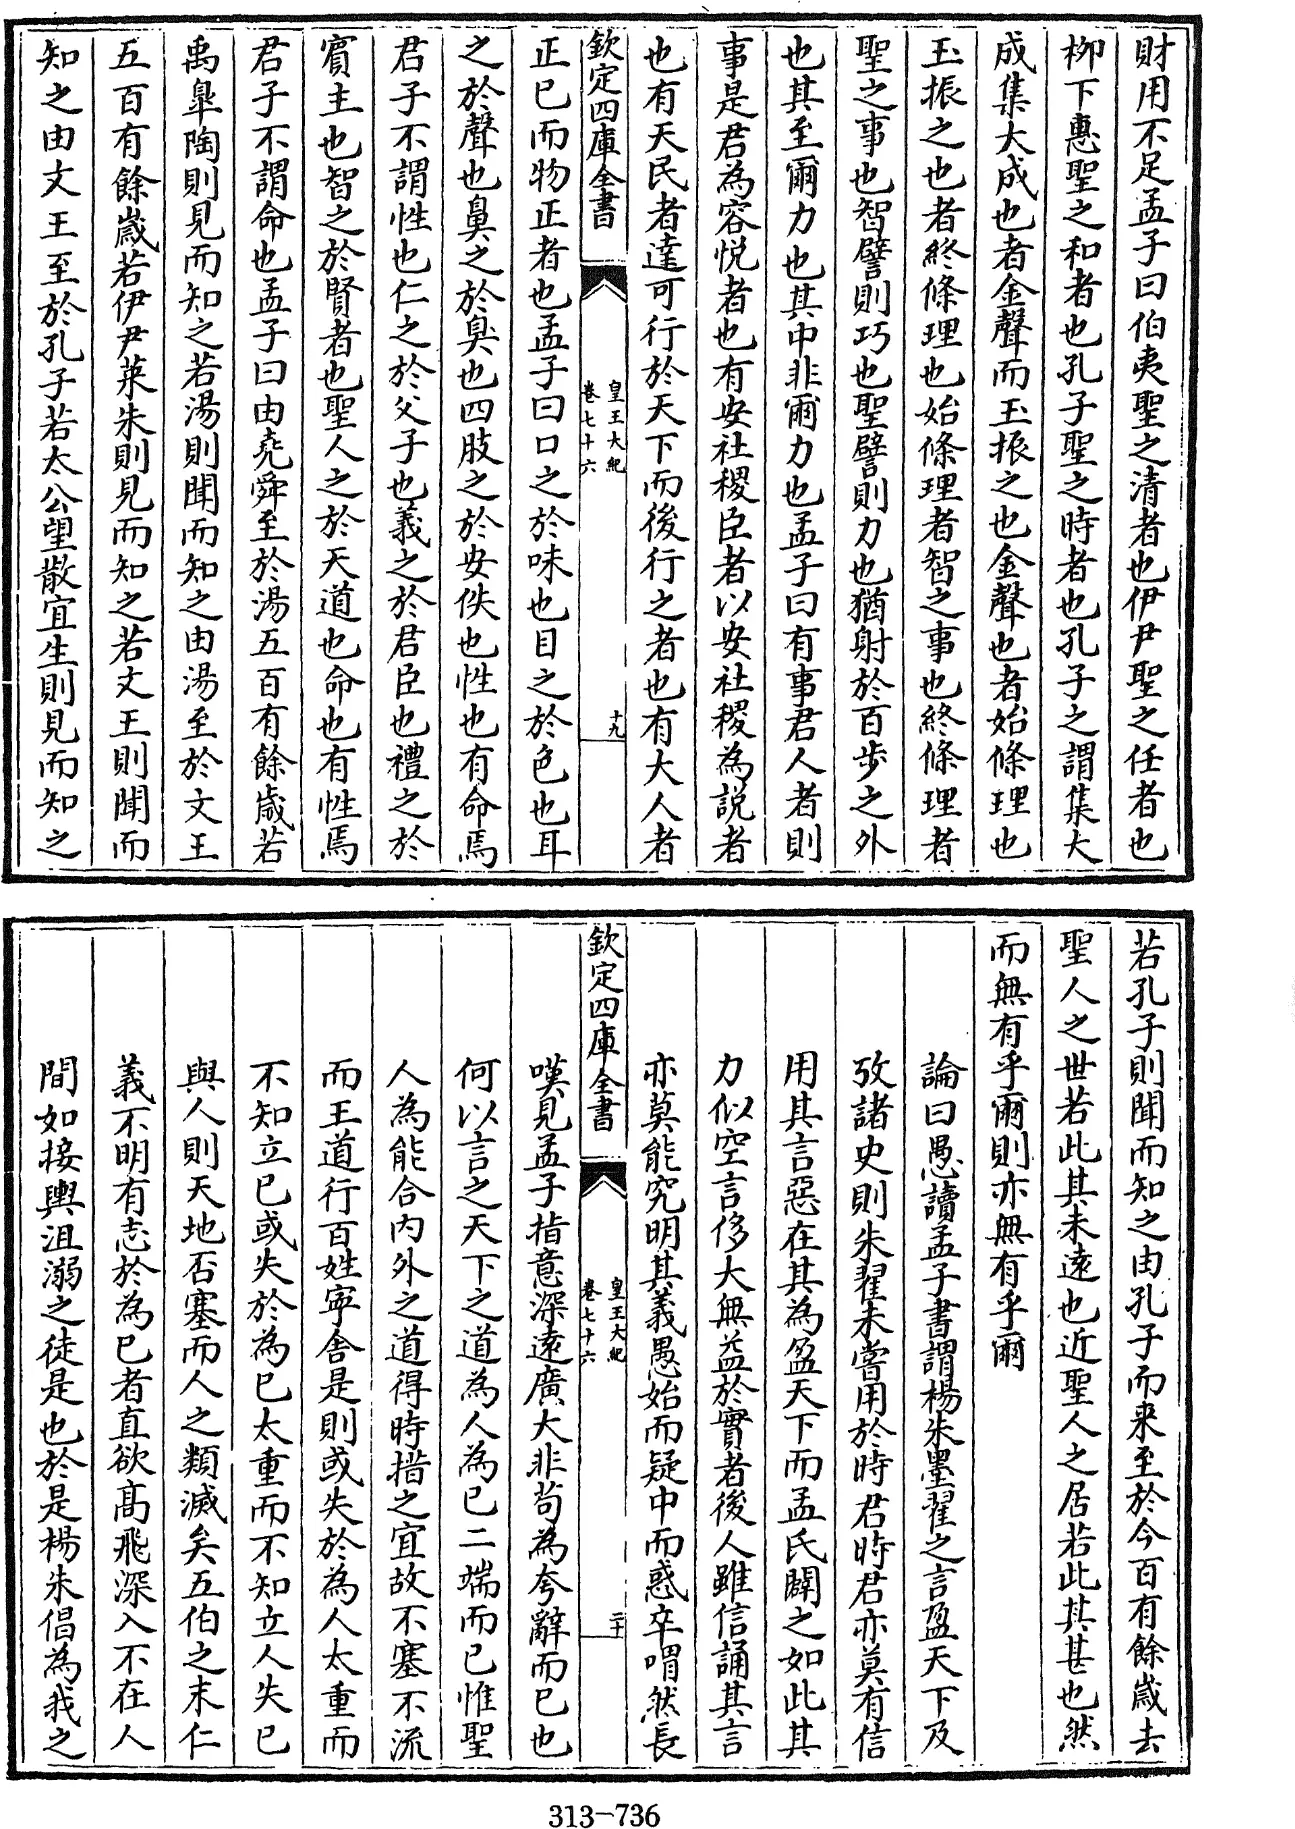 財用不足孟子曰伯夷聖之清者也伊尹聖之任者也
柳下惠聖之和者也孔子聖之時者也孔子之謂集大
成集大成也者金聲而玉振之也金聲也者始條理也
玉振之也者終條理也始條理者智之事也終條理者
聖之事也智譬則巧也聖譬則力也猶射於百步之外
也其至爾力也其中非爾力也孟子曰有事君人者則
事是君為容悅者也有安社稷臣者以安社稷為說者
也有天民者達可行於天下而後行之者也有大人者
欽定四庫全書
皇王大紀
卷七十六
十九
正已而物正者也孟子曰口之於味也目之於色也耳
之於聲也鼻之於臭也四肢之於安佚也性也有命焉
君子不謂性也仁之於父子也義之於君臣也禮之於
賔主也智之於賢者也聖人之於天道也命也有性焉
君子不謂命也孟子曰由堯舜至於湯五百有餘歲若
禹臯陶則見而知之若湯則聞而知之由湯至於文王
五百有餘歲若伊尹萊朱則見而知之若文王則聞而
知之由文王至於孔子若太公望散宜生則見而知之
若孔子則聞而知之由孔子而来至於今百有餘歲去
聖人之世若此其未遠也近聖人之居若此其甚也然
而無有乎爾則亦無有乎爾
論曰愚讀孟子書謂楊朱墨翟之言盈天下及
攷諸史則朱翟未嘗用於時君時君亦莫有信
用其言惡在其為盈天下而孟氏闢之如此其
力似空言侈大無益於實者後人雖信誦其言
亦莫能究明其義愚始而疑中而惑卒喟然長
欽定四庫全書
皇王大紀
卷七十六
二十
嘆見孟子指意深遠廣大非苟為夸辭而已也
何以言之天下之道為人為已二端而已惟聖
人為能合内外之道得時措之宜故不塞不流
而王道行百姓寜舍是則或失於為人太重而
不知立已或失於為已太重而不知立人失已
與人則天地否塞而人之類滅矣五伯之末仁
義不明有志於為已者直欲髙飛深入不在人
間如接輿沮溺之徒是也於是楊朱倡為我之
313-736